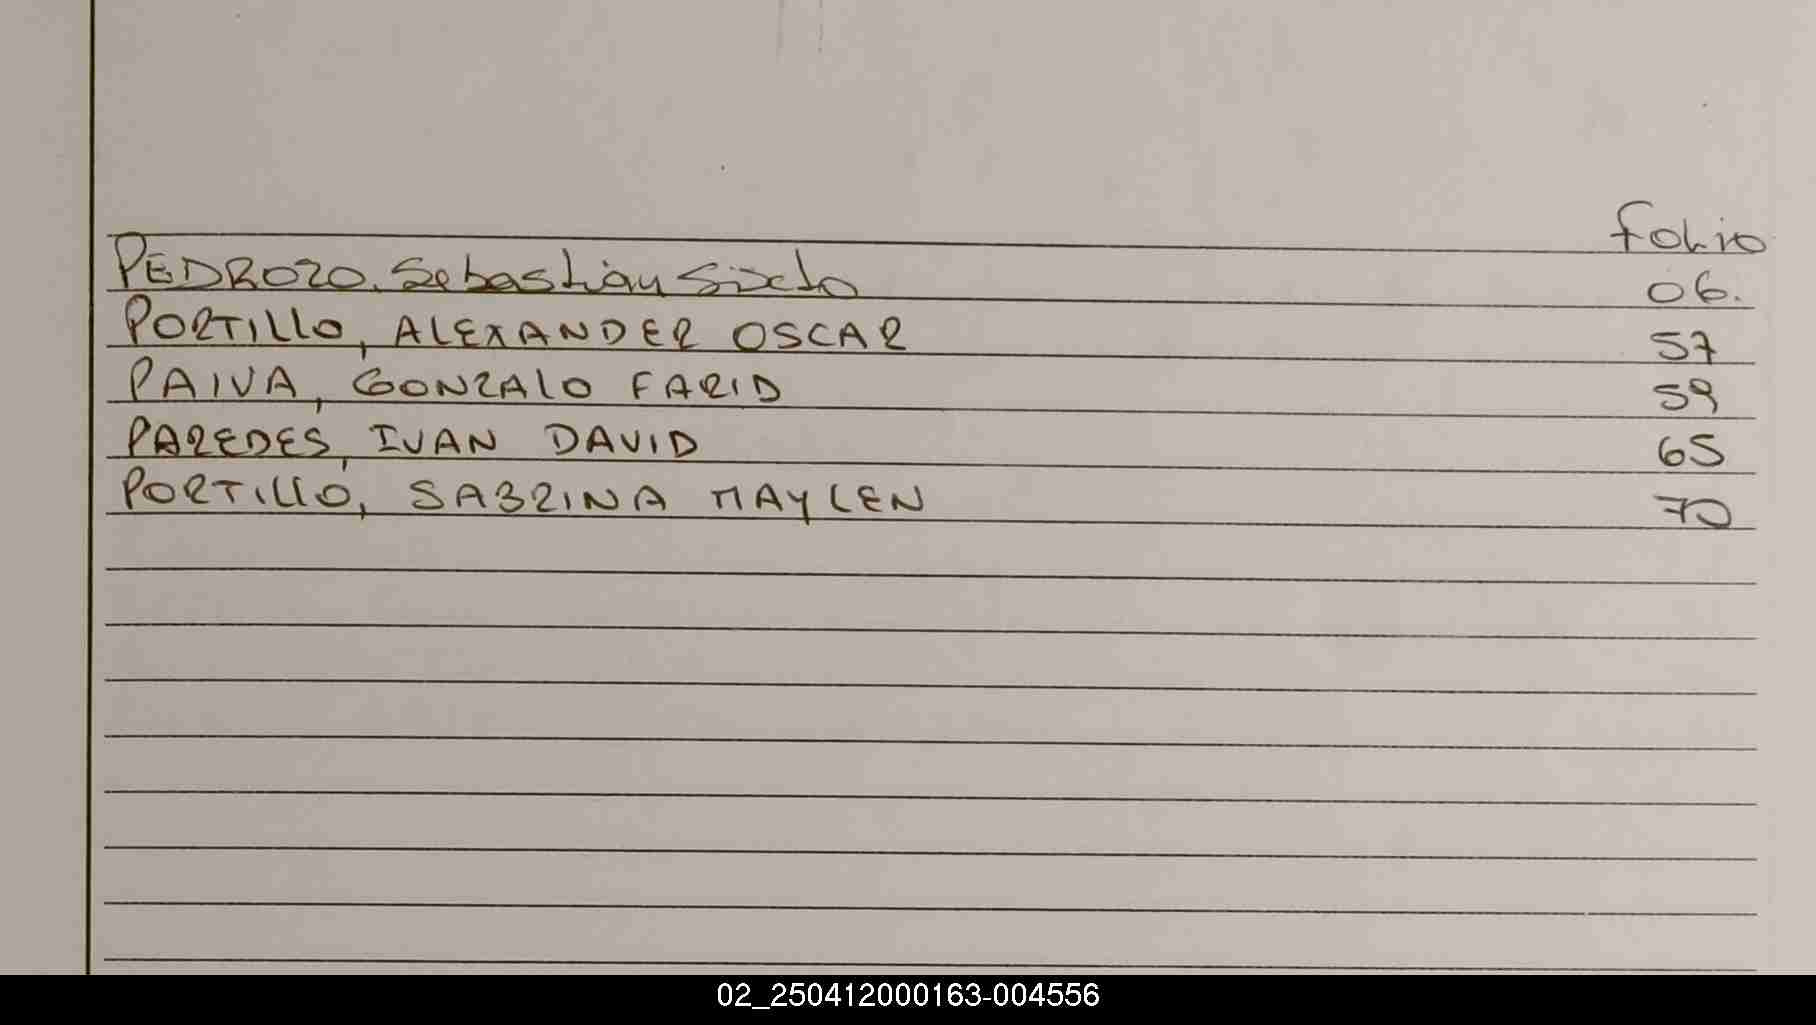 Folio
PEDROZO. Sebastián Sixto 06.
PORTILLO, ALEXANDER OSCAR 57
PAIVA, GONZALO FARID 59
PAREDES, IVAN DAVID 65
PORTILLO, SABRINA MAYLEN 70
02_250412000163-004556